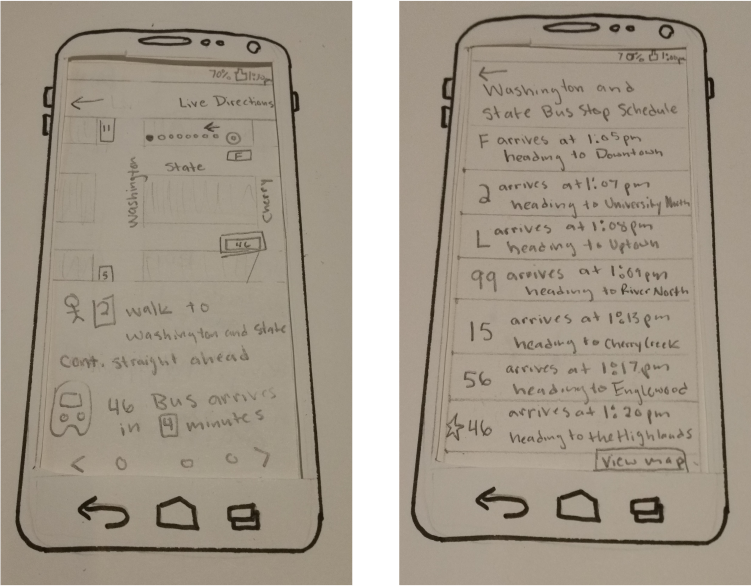 70%
Live Directions
11
F
State
Washington
Cherry
46
5
2 walk to
Washington and State
Cont. straight ahead
46 Bus arrives
in 4 minutes
70%
Washington and
State Bus Stop Schedule
F arrives at 1:05pm
heading to Downtown
2 arrives at 1:07 pm
heading to University North
L arrives at 1:08pm
heading to Uptown
99 arrives at 1:09pm
heading to River North
15 arrives at 1:13 pm
heading to Cherry Creek
56 arrives at 1:17 pm
heading to Englewood
46 arrives at 1:20 pm
heading to the Highlands
View map